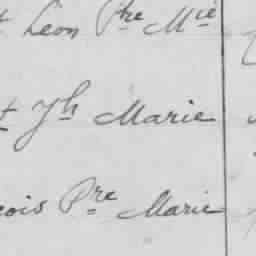 t Leon Pre Mie
t Jh Marie
cois Pre Marie